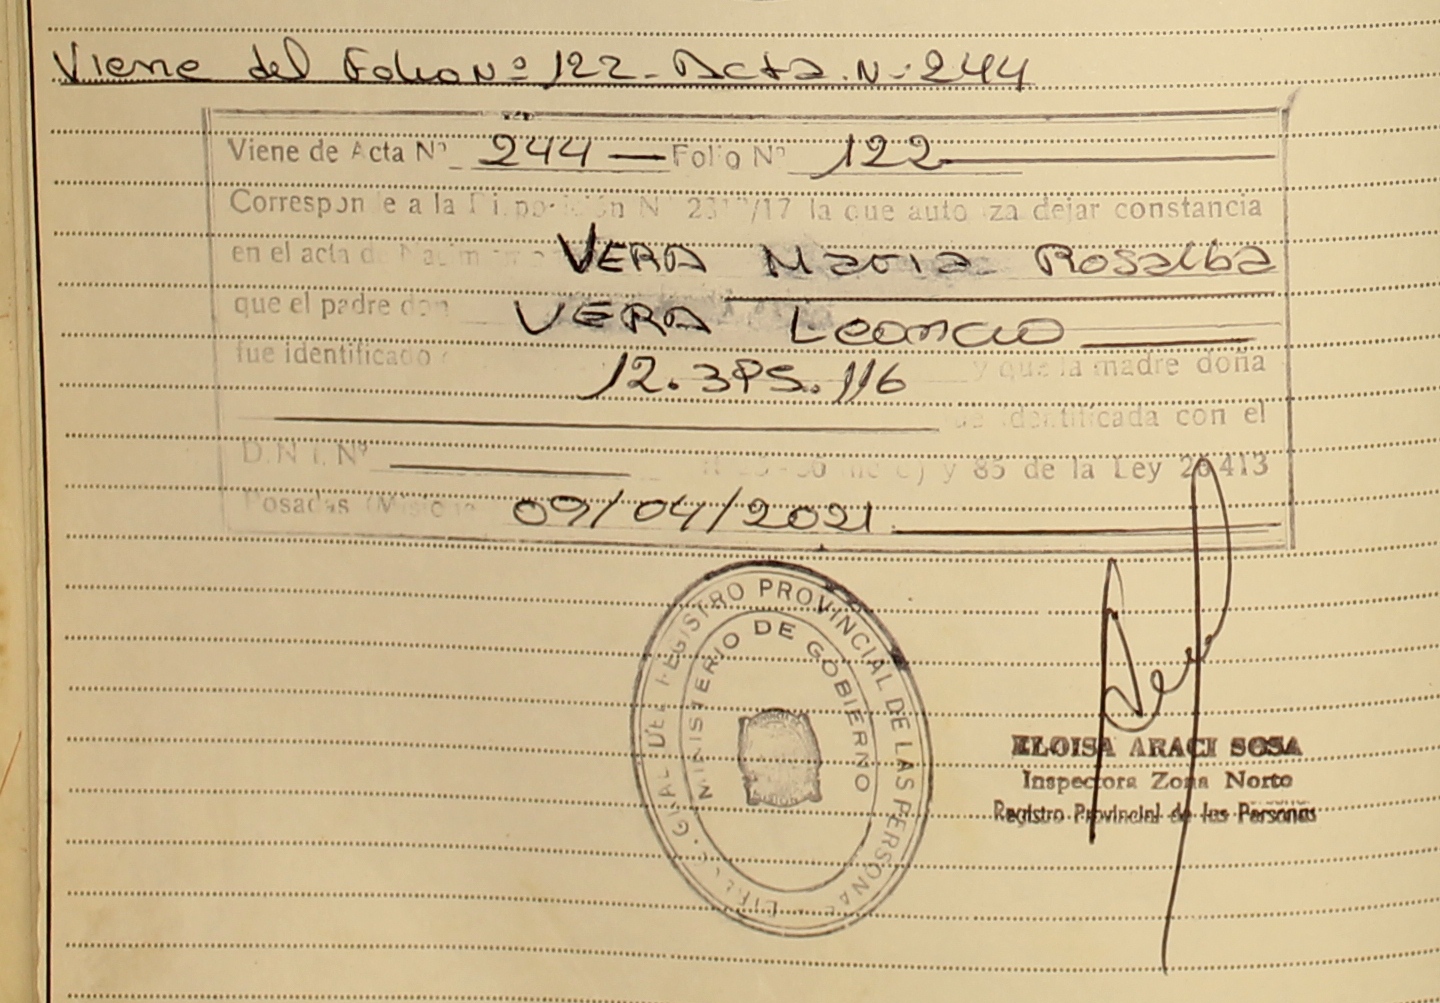 Viene del Folio Nº 122 - Acta N: 244
Viene de Acta Nº 244 — Folio Nº 122
Corresponde a la Disposición Nº /17 la que autoriza dejar constancia
en el acta de VERA Maria Rosalba
que el padre don VERA Leoncio
fue identificado 12.3 .116 y que la madre doña
identificada con el
D.N.I. Nº y 85 de la Ley 26413
Posadas (Misiones 09/04/2021
DEL REGISTRO PROVINCIAL DE LAS PERSONAS
MINISTERIO DE GOBIERNO
ELOISA ARACI SOSA
Inspectora Zona Norte
Registro Provincial de las Personas